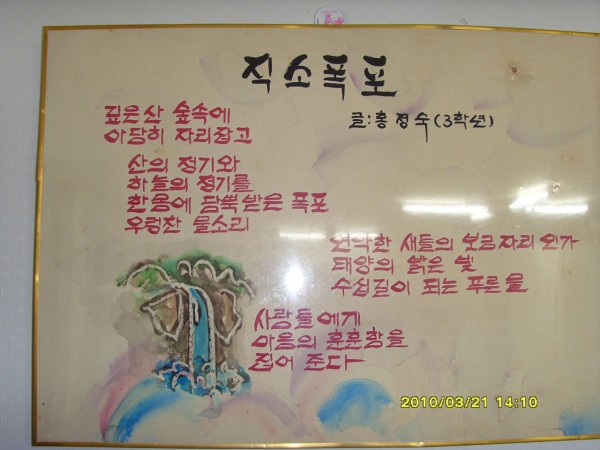 직소폭포
글:홍정숙(3학년)
깊은산 숲속에
아담히 자리잡고
산의 정기와
하늘의 정기를
한몸에 담뿍받은 폭포
우렁찬 물소리
연약한 새들의 보금자리인가
태양의 밝은 빛
수십길이 되는 푸른물
사람들에게
마음의 훈훈함을
집어 준다
2010/03/21 14:10